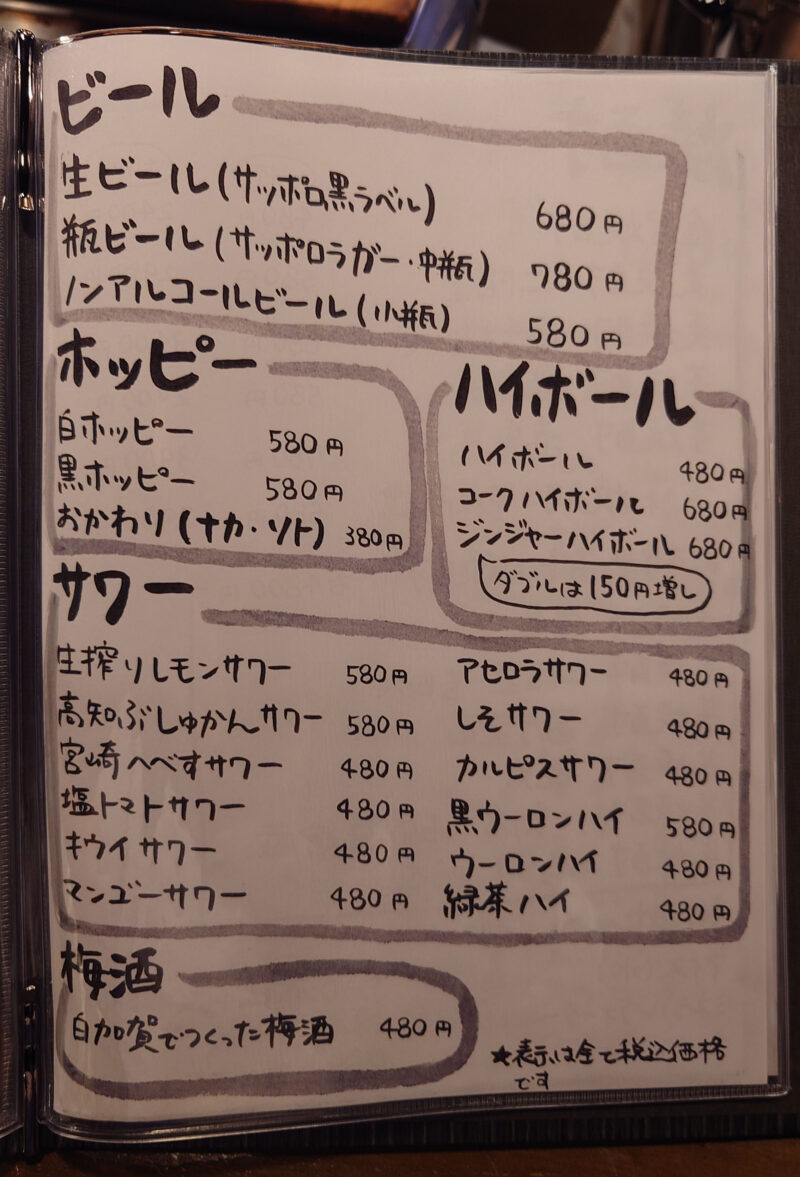 ビール
生ビール(サッポロ黒ラベル) 680円
瓶ビール(サッポロラガー・中瓶) 780円
ノンアルコールビール(小瓶) 580円
ホッピー
白ホッピー 580円
黒ホッピー 580円
おかわり(ナカ・ソト) 380円
ハイボール
ハイボール 480円
コークハイボール 680円
ジンジャーハイボール 680円
ダブルは150円増し
サワー
生搾りレモンサワー 580円
高知ぶしゅかんサワー 580円
宮崎へべすサワー 480円
塩トマトサワー 480円
キウイサワー 480円
マンゴーサワー 480円
アセロラサワー 480円
しそサワー 480円
カルピスサワー 480円
黒ウーロンハイ 580円
ウーロンハイ 480円
緑茶ハイ 480円
梅酒
白加賀でつくった梅酒 480円
★表示は全て税込価格
です